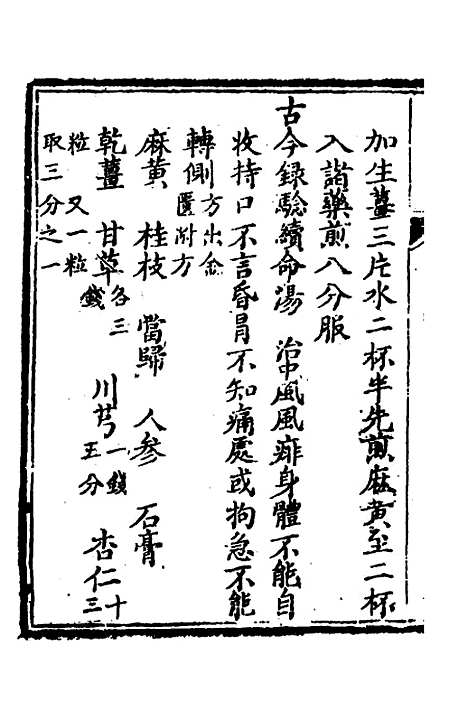 加生薑三片水二杯半先煎麻黄至二杯
入諸藥煎八分服
古今録驗續命湯　治中風風痱身體不能自
收持口不言昏冒不知痛處或拘急不能
轉側方出金匱附方
麻黄　桂枝　當歸　人參　石膏
乾薑　甘草各三錢　川芎一錢五分　杏仁二十三
粒　又一粒取三分之一